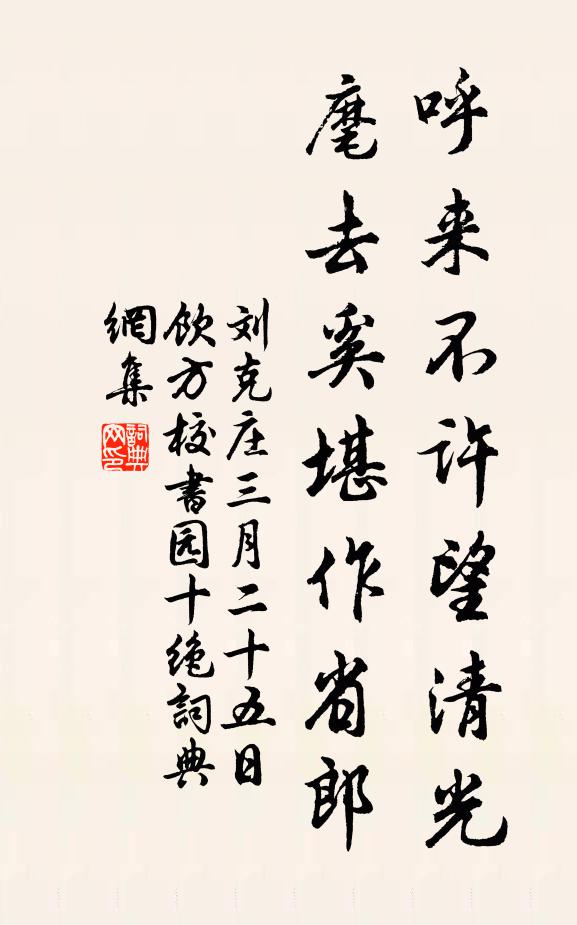 呼来不许望清光
麾去奚堪作省郎
刘克庄三月二十五日
饮方校书园十绝詞典
網集
詞典
网印